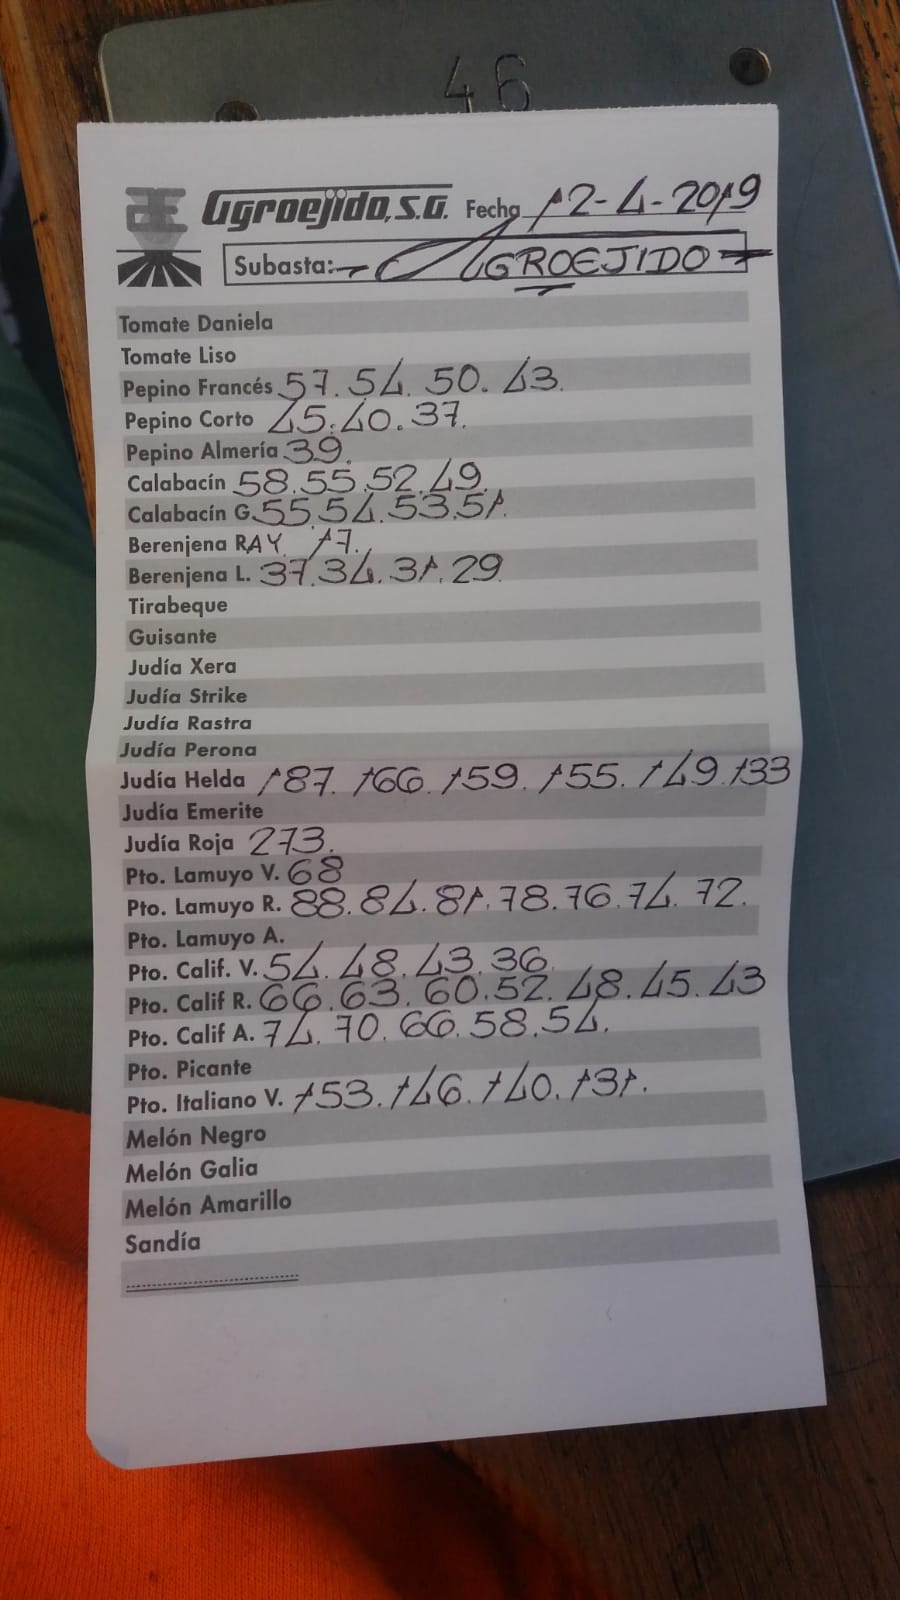 46
Agroejido, S.A. Fecha 12-4-2019
Subasta: AGROEJIDO
Tomate Daniela
Tomate Liso
Pepino Francés 57. 54. 50. 43.
Pepino Corto 45. 40. 37.
Pepino Almería 39.
Calabacín 58. 55. 52. 49.
Calabacín G. 55 54. 53. 51.
Berenjena RAY. 17.
Berenjena L. 37. 34. 31. 29
Tirabeque
Guisante
Judía Xera
Judía Strike
Judía Rastra
Judía Perona
Judía Helda 187. 166. 159. 155. 149. 133
Judía Emerite
Judía Roja 273.
Pto. Lamuyo V. 68
Pto. Lamuyo R. 88. 84. 81. 78. 76. 74. 72.
Pto. Lamuyo A.
Pto. Calif. V. 54. 48. 43. 36
Pto. Calif R. 66. 63. 60. 52. 48. 45. 43
Pto. Calif A. 74. 70. 66. 58. 54.
Pto. Picante
Pto. Italiano V. 153. 146. 140. 131.
Melón Negro
Melón Galia
Melón Amarillo
Sandía